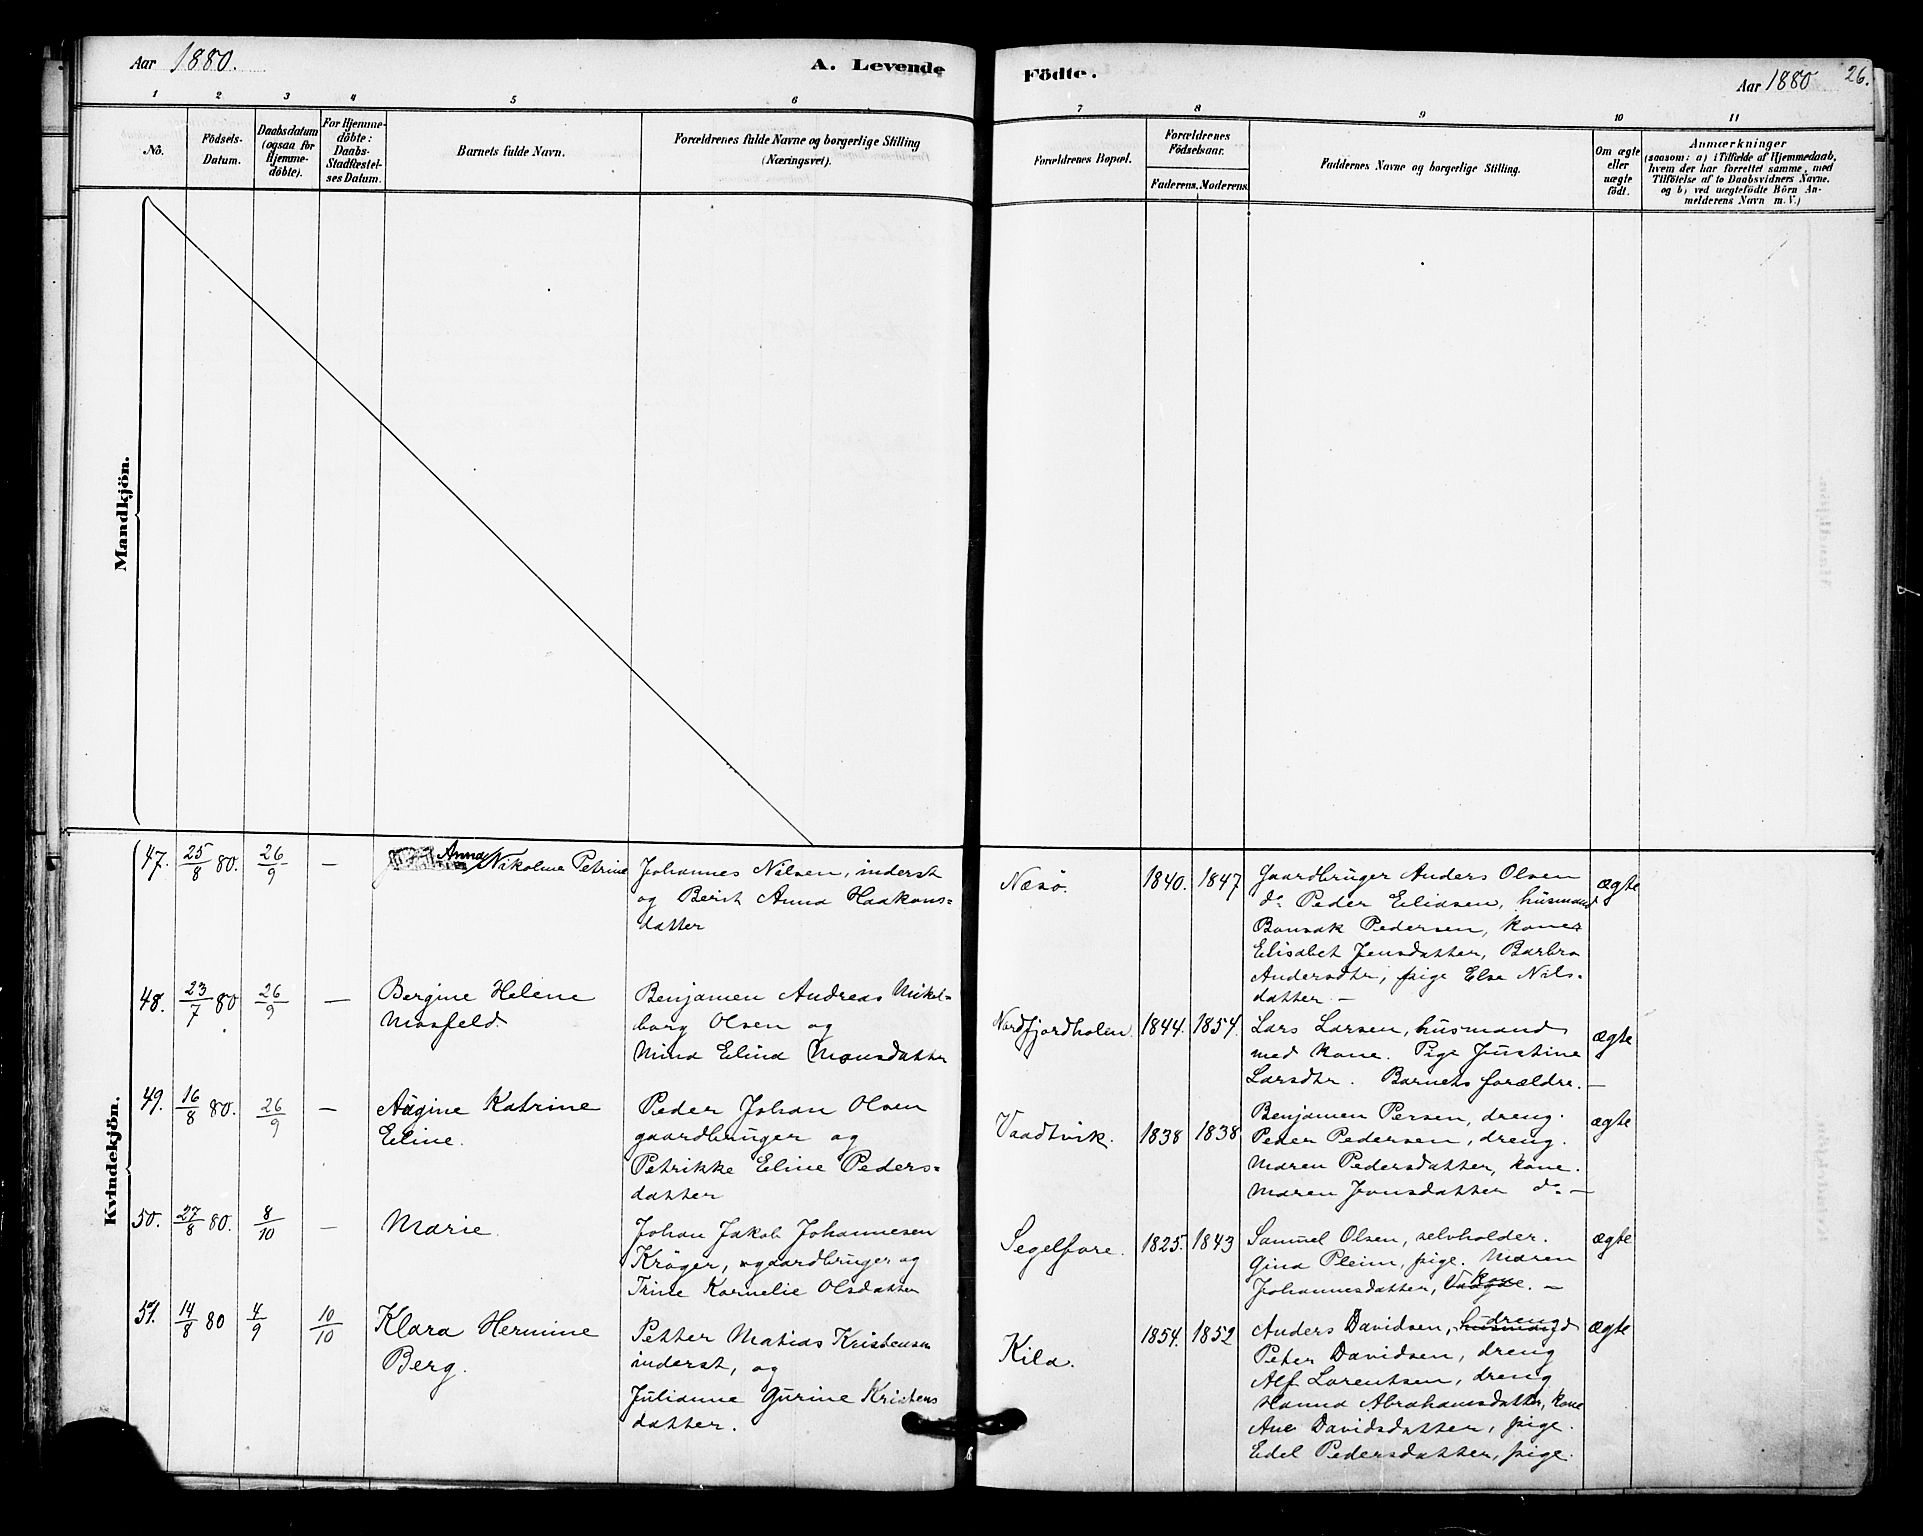 Aar 1880.
A. Levende
Födte.
Aar 1880
26.
1
2
3
4
5
6
7
8
9
10
11
No.
Födsels-
Datum.
Daabsdatum
(ogsaa for
Hjemme-
döbte).
For Hjemme-
döbte:
Daabs-
Stadfæstel-
ses Datum.
Barnets fulde Navn.
Forældrenes fulde Navne og borgerlige Stilling
(Næringsvei).
Forældrenes Bopæl.
Forældrenes
Födselsaar.
Faderens. Moderens.
Faddernes Navne og borgerlige Stilling.
Om ægte
eller
uægte
födt.
Anmærkninger
(saasom: a) i Tilfælde af Hjemmedaab,
hvem der har forrettet samme, med
Tilföielse af to Daabsvidners Navne.
og b) ved uægtefödte Börn An-
melderens Navn m. V.)
Mandkjön.
Kvindekjön.
47. 25/8 80. 26/9 —
Anna Nikoline Petrine
Johannes Nilsen, inderst
og Berit Anna Haakons-
datter
Næsö.
1840. 1847
Gaardbruger Anders Olsen
do Peder Eliasen, husmand
Bonsak Pedersen, koner
Elisabet Jensdatter, Barbra
Andersdtr, pige Else Nils-
datter. —
ægte
48. 23/7 80 26/9 —
Bergine Helene
Mosfeld.
Benjamen Andreas Mikel-
borg Olsen og
Mina Elina Monsdatter
Nordfjordholen
1844. 1854.
Lars Larsen, husmand
med kone. Pige Justine
Larsdtr. Barnets forældre. —
ægte
49. 16/8 80. 26/9 —
Augine Katrine
Eline.
Peder Johan Olsen
gaardbruger og
Petrikke Eline Peders-
datter
Vaadtvik.
1838 1838
Benjamen Persen, dreng.
Peder Pedersen, dreng.
Maren Pedersdatter, kone.
Maren Jonsdatter do —
ægte
50. 27/8 80. 8/10 —
Marie.
Johan Jakob Johannesen
Kröger, gaardbruger og
Trine Kornelie Olsdatter
Segelfore.
1825. 1843
Samuel Olsen, selvholder.
Gina Pleim, pige. Maren
Johannesdatter, kone. —
ægte
51. 14/8 80 4/9 10/10
Klara Hermine
Berg.
Petter Matias Kristensen
inderst, og
Julianne Gurine Kristens
datter.
Kila.
1854. 1852
Anders Davidsen, husmand dreng
Peter Davidsen, dreng
Alf Lorentsen, dreng
Hanna Abrahamsdatter, kone
Ane Davidsdatter, pige.
Edel Pedersdatter, pige.
ægte